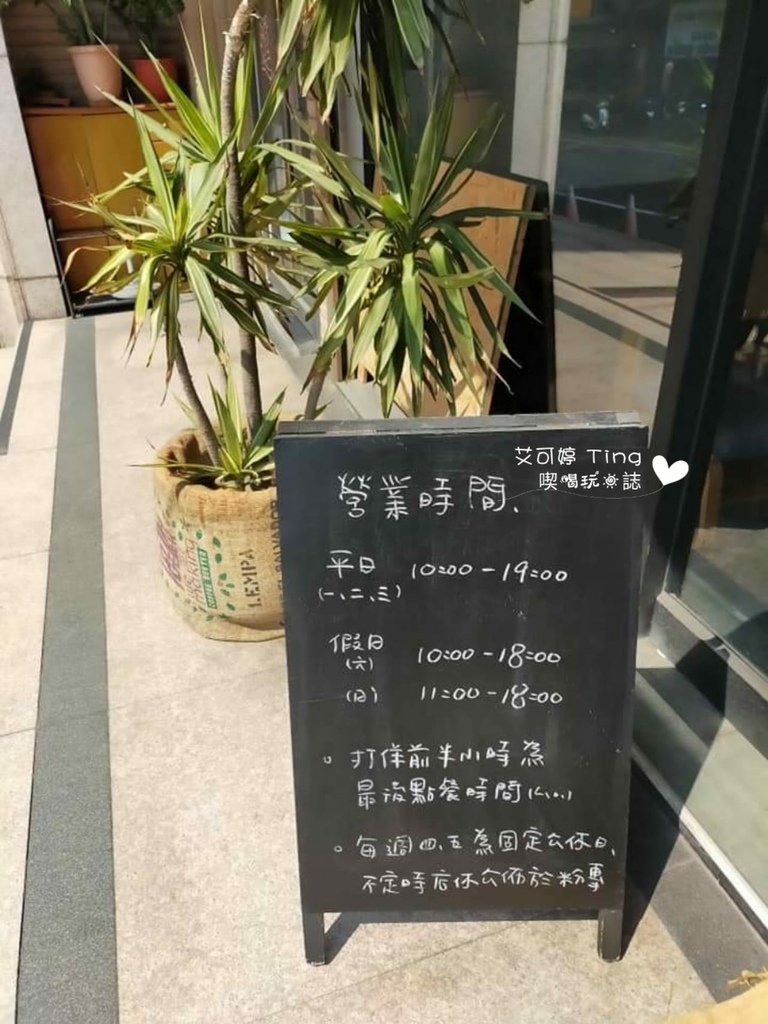 艾可婷 Ting
喫喝玩樂誌
營業時間、
平日 10:00-19:00
(一、二、三)
假日
(六) 10:00-18:00
(日) 11:00-18:00
。打烊前半小時為
最後點餐時間
。每週四、五為固定公休日、
不定時店休公佈於粉專
LEMPA
EL SALVADOR